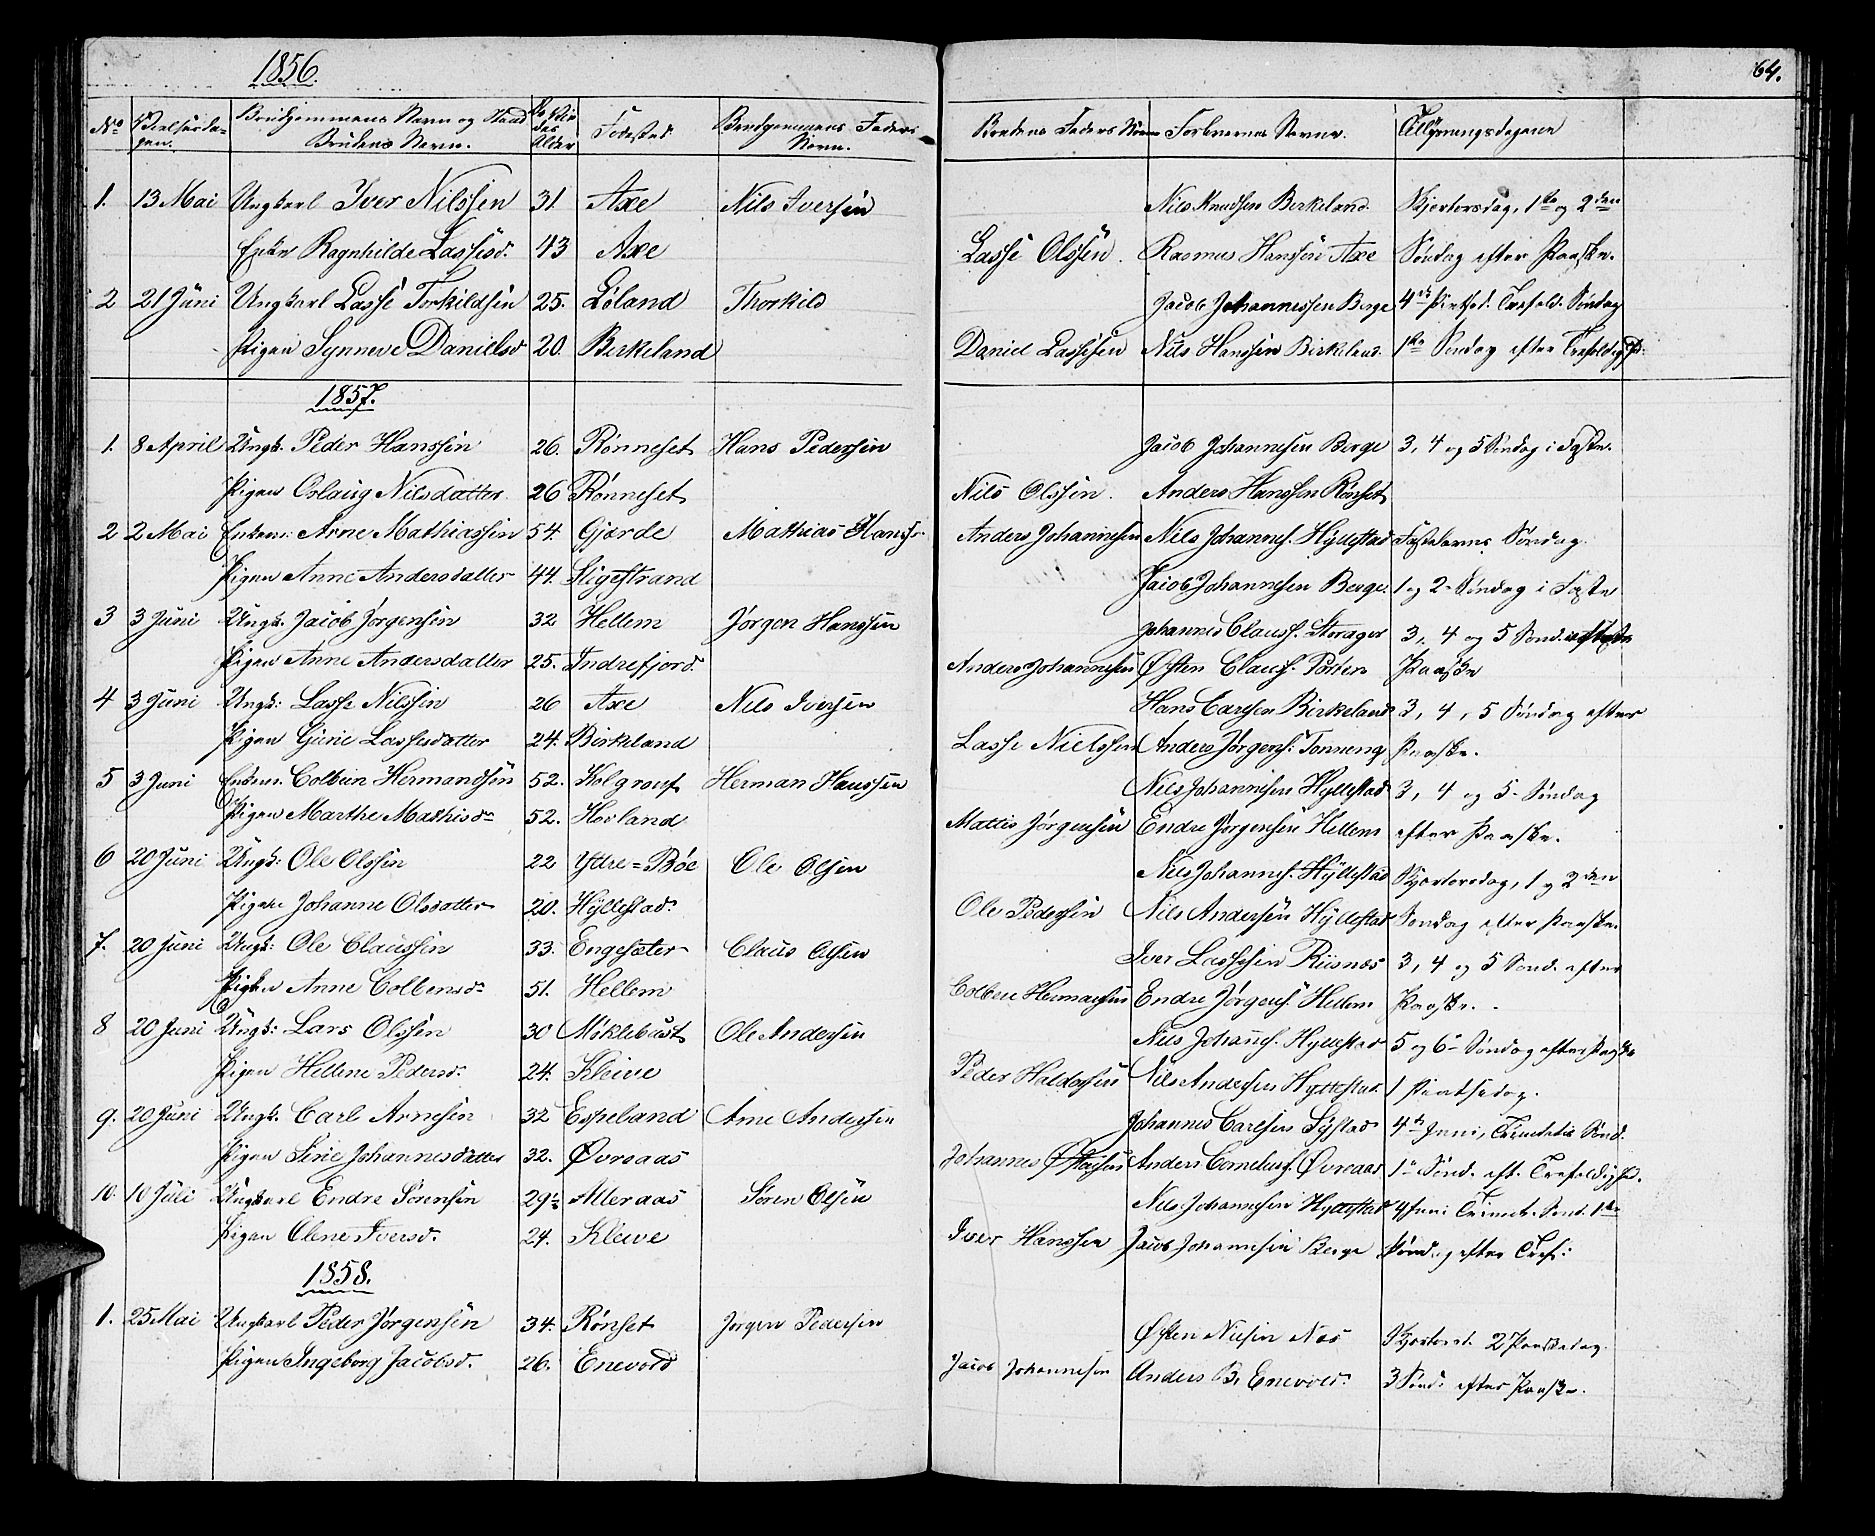 1856.
64.
No Vielsesdagen. Brudgommens Navn og Stand Brudens Navn. Alder Fødested Brudgommens Faders Navn. Brudens Faders Navn Forlovernes Navne. Tillysningsdagene
1. 13 Mai Ungkarl Iver Nilssen 31 Axe Nils Iversen Nils Knudsen Birkeland Skjertorsdag, 1ste og 2den
Enke Ragnhilde Lassesd. 43 Axe Lasse Olssen. Rasmus Hanssen Axe Søndag efter Paaske.
2 21 Juni Ungkarl Lasse Torkildsen 25. Løland Thorkild Jacob Johannessen Berge 4de Pintsed. Trefold. Søndag
Pigen Synneve Danielsd 20. Birkeland Daniel Lassesen Nils Hanssen Birkeland. 1ste Søndag efter Trefoldighed:
1857.
1. 8 April Ungk. Peder Hanssen 26. Rønneset Hans Pedersen Jacob Johannesen Berge 3, 4 og 5 Søndag i Faste.
Pigen Oslaug Nilsdatter. 26 Rønneset Nils Olssen. Anders Hanssen Rønset
2 2 Mai Enkem. Arne Mathiassen 54. Gjærde Mathias Hansen Anders Johannesen Nils Johannes. Hyllestad Fastelavns Søndag.
Pigen Anne Andersdatter 44. Stigestrand Jacob Johannesen Berge. 1 og 2 Søndag i Faste
3 3 Juni Ungk. Jacob Jørgensen 32 Hellem Jørgen Hanssen Johannes Clauss. Storager 3, 4 og 5 Sønd. efter
Pigen Anne Andersdatter 25. Indrefjord. Anders Johannesen Østen Clauss. Paaske
4 3 Juni Ungk: Lasse Nilssen 26 Axe Nils Iversen Hans Carlsen Birkeland 3, 4, 5 Søndag efter
Pigen Gurie Lassesdatter 24. Birkeland Lasse Nielssen Anders Jørgens. Tonneng Paaske.
5 3 Juni Enkem. Colbein Hermandsen 52. Kolgrout Herman Hanssen Nils Johannesen Hyllestad 3, 4 og 5 Søndag
Pigen Marthe Mathisd. 52. Hovland Mattis Jørgensen Endre Jørgensen Hellem efter Paaske.
6 20 Juni Ungk: Ole Olssen 22 Yttre=Bøe Ole Olsen Nils Johannes. Hyllestad Skjertorsdag, 1 og 2den
Pigen Johanne Olsdatter 20. Hyllestad. Ole Pedersen Nils Andersen Hyllestad Søndag efter Paaske.
7. 20 Juni Ungk: Ole Claussen 33. Engesæter Claus Olsen Iver Lassesen Risnes 3, 4 og 5 Sønd. efter
Pigen Anne Colbensd. 51. Hellem Colben Hermansen Endre Jørgens. Hellem Paaske.
8 20 Juni Ungk: Lars Olssen 30 Miklebust Ole Andersen Nils Johans. Hyllestad 5 og 6 Søndag efter Paaske
Pigen Hellene Pedersd. 24. Kleive Peder Haldorsen Nils Andersen Hyllestad 1 Pintsedag.
9. 20 Juni Ungk. Carl Arnesen 32 Espeland Arne Andersen Johannes Carlsen Systad 4de Juni, Trinitatis Sønd.
Pigen Sirie Johannesdatter 32. Øvreaas Johannes Anders Cornelius. Øvreaas 1ste Sønd. eft. Trefoldighed.
10. 10 Juli Ungkarl Endre Sørensen 29½ Atleraas Søren Olsen Nils Johannesen Hyllestad 4 Juni Trinit. Sønd. 1ste
Pigen Olene Iversd. 24. Kleive Iver Hanssen Jacob Johannesen Berge Søndag efter Tref:
1858.
1. 25 Mai Ungkarl Peder Jørgensen 34. Rønset Jørgen Pedersen Østen Nilsen Næs Skjertorsd. 2 Paaskedag.
Pigen Ingeborg Jacobsd. 26. Enevold Jacob Johannesen Anders B. Enevold. 3 Sønd. efter Paaske.